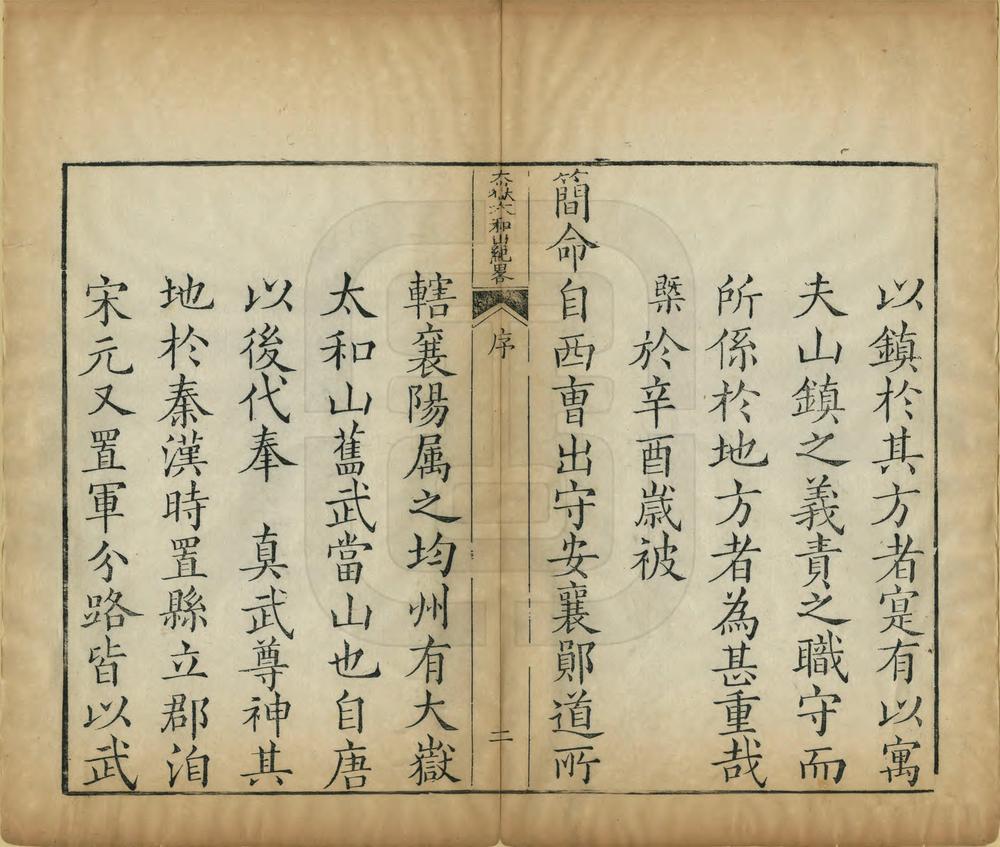 以鎮於其方者寔有以寓
夫山鎮之義責之職守而
所係於地方者為甚重哉
槩於辛酉歲被
簡命自西曹出守安襄鄖道所
太嶽太和山紀畧
序
二
轄襄陽属之均州有大嶽
太和山舊武當山也自唐
以後代奉 真武尊神其
地於秦漢時置縣立郡洎
宋元又置軍分路皆以武